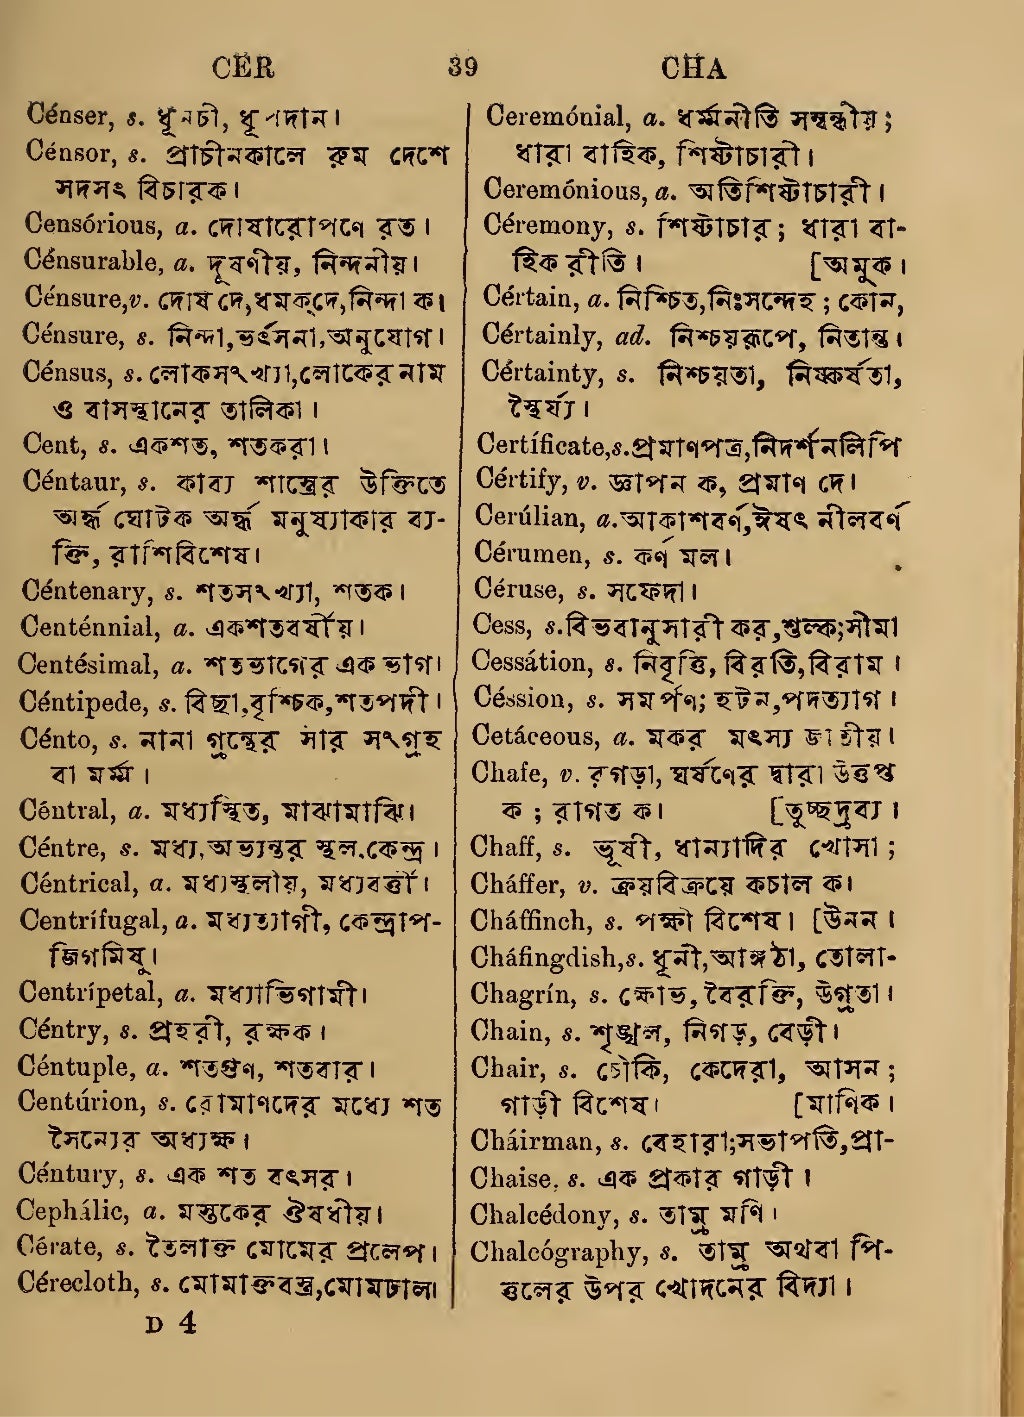 CER 39 CHA
Cénser, s. ধূনচী, ধূপদান।
Cénsor, s. প্রাচীনকালে রুম দেশে
সদসৎ বিচারক।
Censórious, a. দোষারোপণে রত।
Cénsurable, a. দূষণীয়, নিন্দনীয়।
Cénsure, v. দোষ দে, ধমক্ দে, নিন্দা ক।
Cénsure, s. নিন্দা, ভর্ৎসনা, অনুযোগ।
Cénsus, s. লোকসংখ্যা, লোকের নাম
ও বাসস্থানের তালিকা।
Cent, s. একশত, শতকরা।
Céntaur, s. কাব্য শাস্ত্রের উক্তিতে
অর্দ্ধ ঘোটক অর্দ্ধ মনুষ্যাকার ব্য-
ক্তি, রাশিবিশেষ।
Céntenary, s. শতসংখ্যা, শতক।
Centénnial, a. একশতবর্ষীয়।
Centésimal, a. শতভাগের এক ভাগ।
Céntipede, s. বিছা, বৃশ্চিক, শতপদী।
Cénto, s. নানা গ্রন্থের সার সংগ্রহ
বা মর্ম্ম।
Céntral, a. মধ্যস্থিত, মাঝামাঝি।
Céntre, s. মধ্য, অভ্যন্তর স্থল, কেন্দ্র।
Céntrical, a. মধ্যস্থলীয়, মধ্যবর্ত্তী।
Centrífugal, a. মধ্যত্যাগী, কেন্দ্রাপ-
জিগমিষু।
Centrípetal, a. মধ্যাভিগামী।
Céntry, s. প্রহরী, রক্ষক।
Céntuple, a. শতগুণ, শতবার।
Centúrion, s. রোমাণদের মধ্যে শত
সৈন্যের অধ্যক্ষ।
Céntury, s. এক শত বৎসর।
Cephálic, a. মস্তকের ঔষধীয়।
Cérate, s. তৈলাক্ত মোমের প্রলেপ।
Cérecloth, s. মোমাক্তবস্ত্র, মোমঢাল।
D 4
Ceremónial, a. ধর্ম্মনীতি সম্বন্ধীয়;
ধারা বাহিক, শিষ্টাচারী।
Ceremónious, a. অতিশিষ্টাচারী।
Céremony, s. শিষ্টাচার; ধারা বা-
হিক রীতি। [অমুক।
Cértain, a. নিশ্চিত, নিঃসন্দেহ; কোন,
Cértainly, ad. নিশ্চয়রূপে, নিতান্ত।
Cértainty, s. নিশ্চয়তা, নিষ্কর্ষতা,
স্থৈর্য্য।
Certíficate, s. প্রমাণপত্র, নিদর্শনলিপি
Cértify, v. জ্ঞাপন ক, প্রমাণ দে।
Cerúlian, a. আকাশবর্ণ, ঈষৎ নীলবর্ণ
Cérumen, s. কর্ণ মল।
Céruse, s. সফেদা।
Cess, s. বিভবানুসারী কর, শুল্ক; সীমা
Cessátion, s. নিবৃত্তি, বিরতি, বিরাম।
Céssion, s. সমর্পণ; হটন, পদত্যাগ।
Cetáceous, a. মকর মৎস্য জাতীয়।
Chafe, v. রগড়া, ঘর্ষণের দ্বারা উত্তপ্ত
ক; রাগত ক। [তুচ্ছদ্রব্য।
Chaff, s. ভূষী, ধান্যাদির খোসা;
Cháffer, v. ক্রয়বিক্রয়ে কচাল ক।
Cháffinch, s. পক্ষী বিশেষ। [উনন।
Cháfingdish, s. ধূনী, আঙ্গঠা, তোলা-
Chagrín, s. ক্ষোভ, বৈরক্তি, উগ্রতা।
Chain, s. শৃঙ্খল, নিগড়, বেড়ী।
Chair, s. চৌকি, কেদেরা, আসন;
গাড়ী বিশেষ। [মাণিক।
Cháirman, s. বেহারা; সভাপতি, প্রা-
Chaise, s. এক প্রকার গাড়ী।
Chalcédony, s. তাম্র মণি।
Chalcógraphy, s. তাম্র অথবা পি-
ত্তলের উপর খোদনের বিদ্যা।